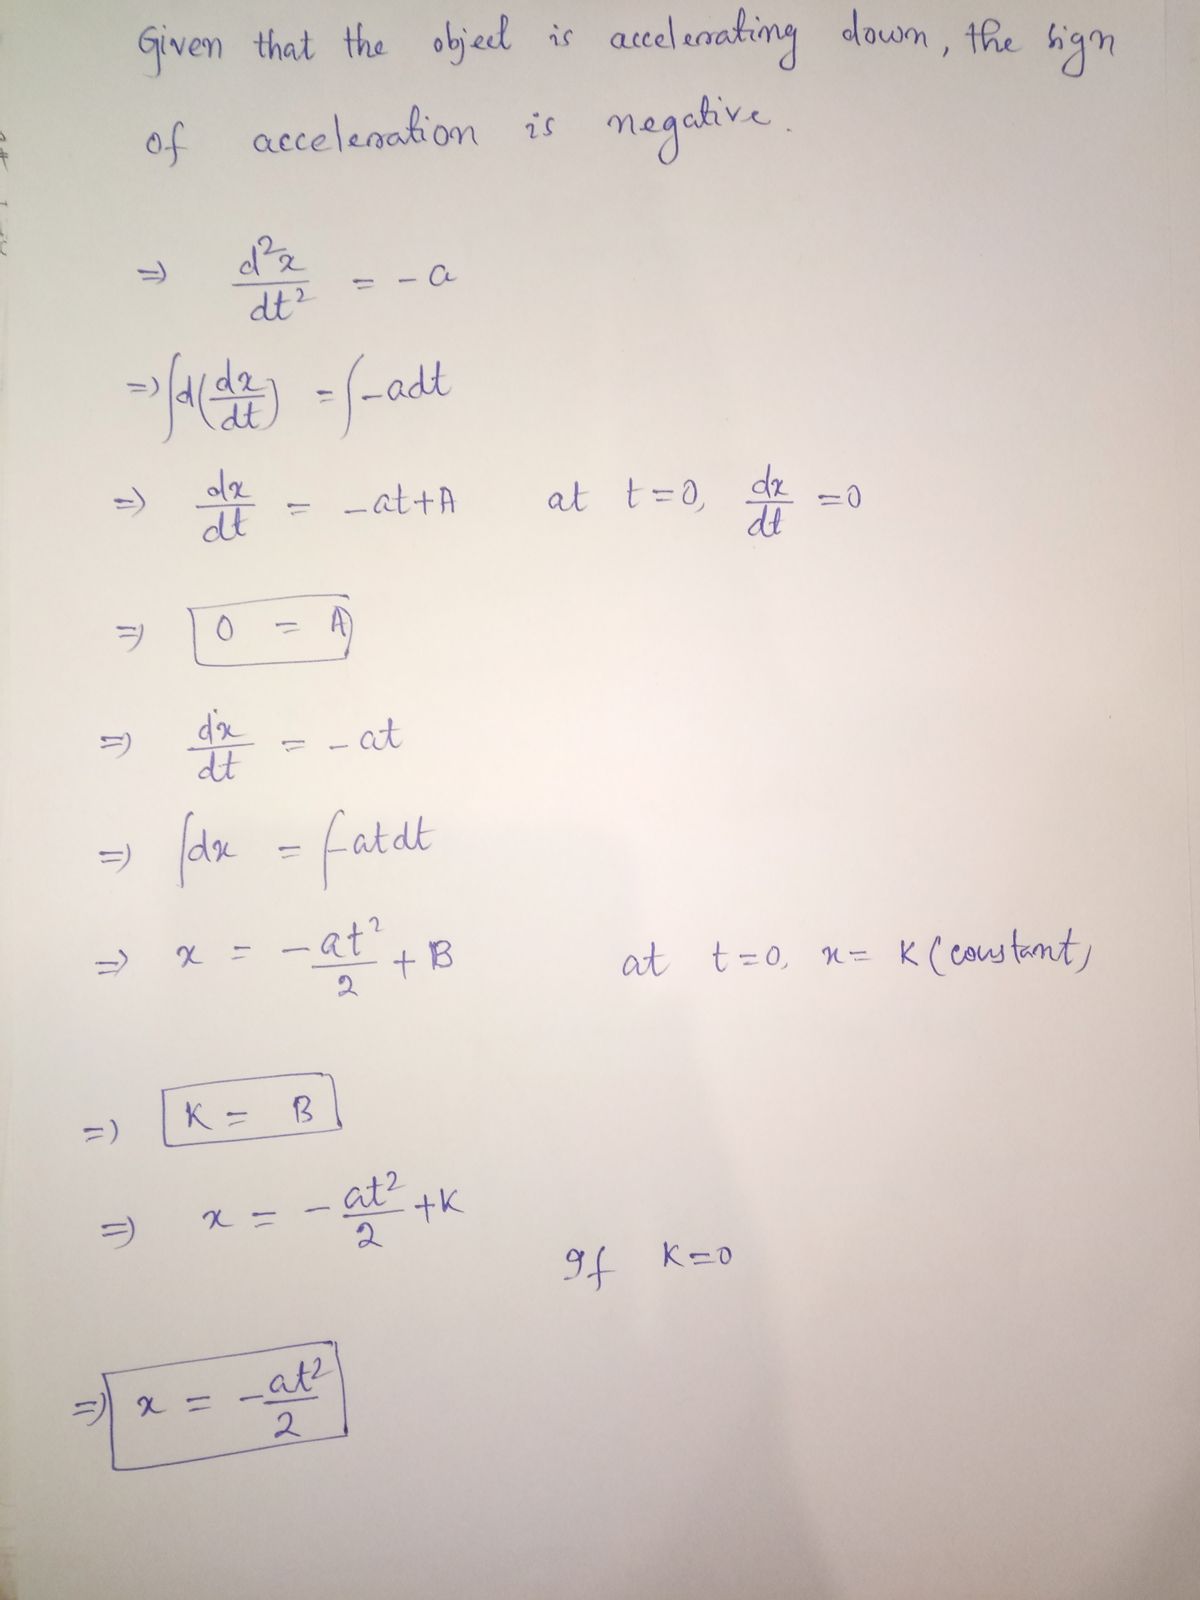 Given that the object is accelerating down, the sign
of acceleration is negative.
⇒ d²x/dt² = -a
⇒ ∫d(dx/dt) = ∫-adt
⇒ dx/dt = -at+A at t=0, dx/dt =0
⇒ 0 = A
⇒ dx/dt = -at
⇒ ∫dx = ∫-atdt
⇒ x = -at²/2 + B at t=0, x= K (constant)
⇒ K = B
⇒ x = -at²/2 +K
If K=0
⇒ x = -at²/2